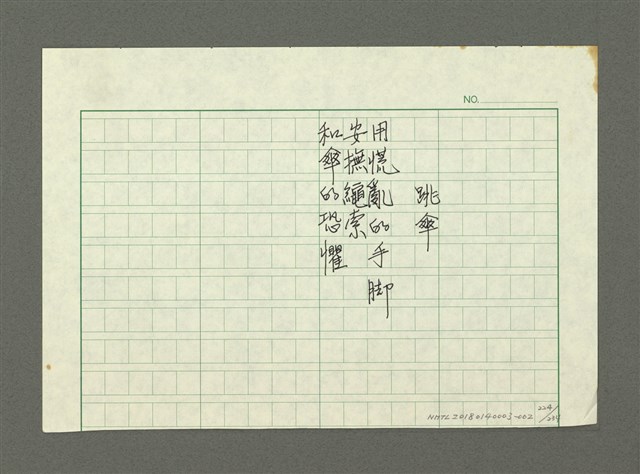 NO.
跳傘
用慌亂的手腳
安撫繩索
和傘的恐懼
NMTL20180140003-002
224/225